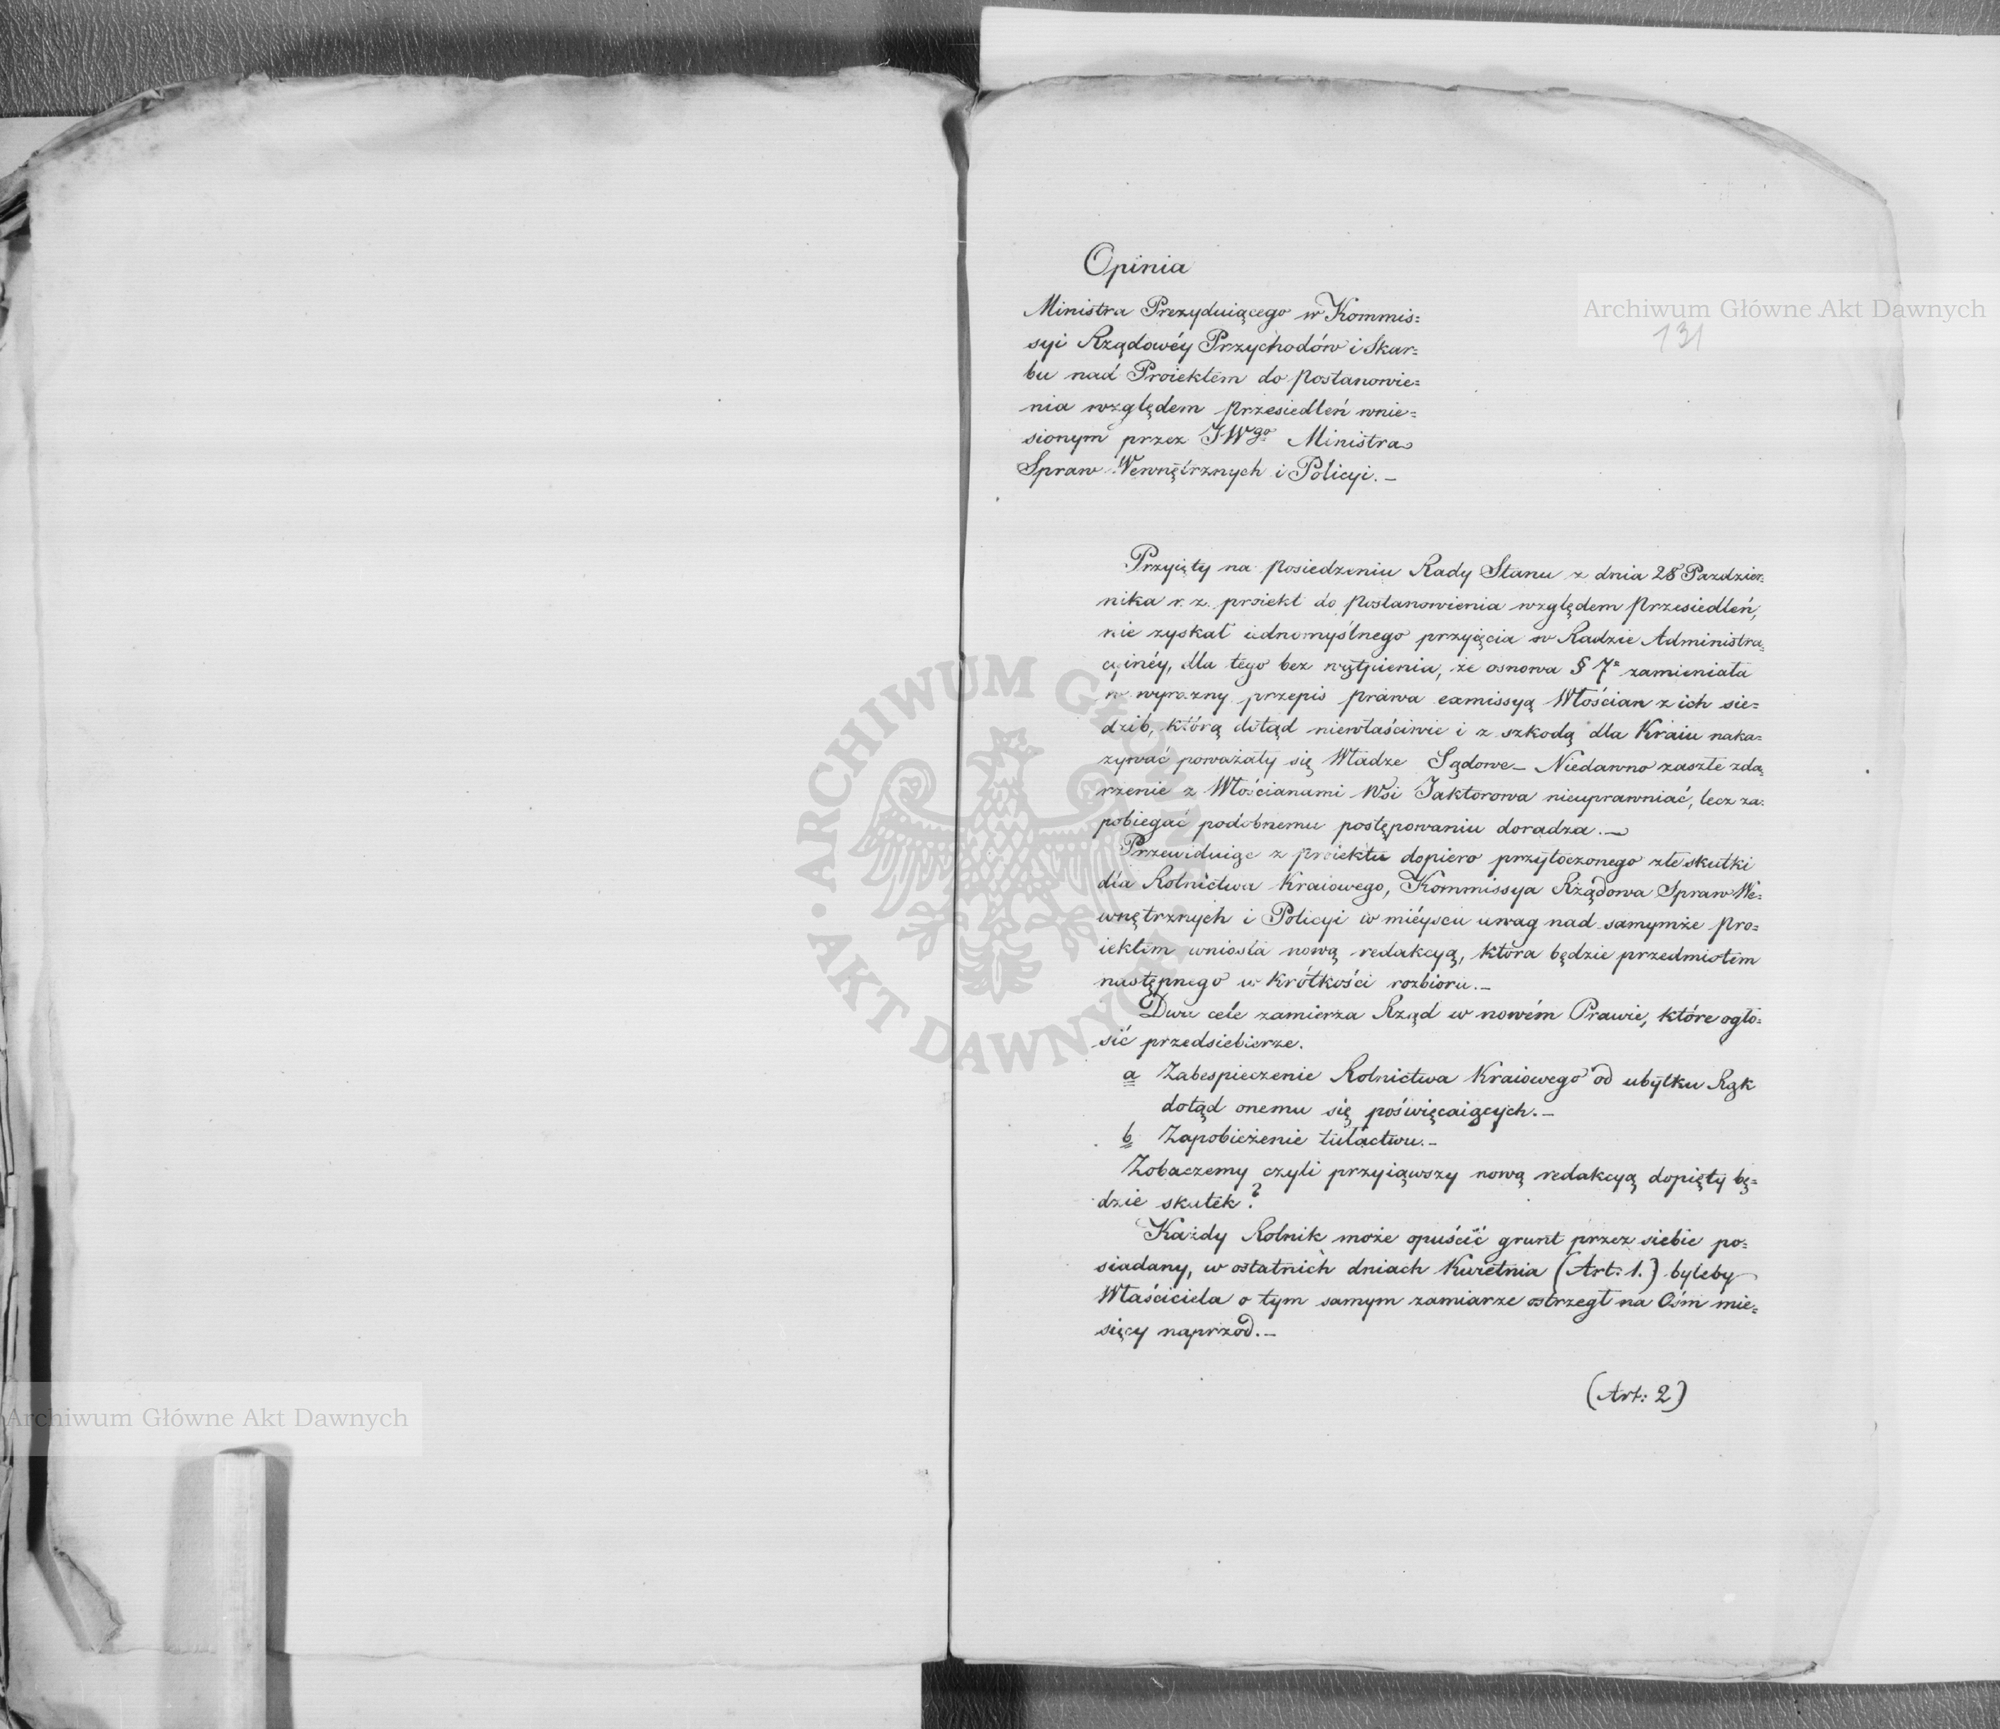 Opinia
Ministra Prezyduiącego w Kommis=
syi Rządowéy Przychodów i Skar=
bu nad Proiektem do postanowie=
nia względem przesiedleń wnie=
sionym przez JWgo Ministra
Spraw Wewnętrznych i Policyi.—
Archiwum Główne Akt Dawnych
131
Przyięty na posiedzeniu Rady Stanu z dnia 28 Pazdzier=
nika r. z. proiekt do postanowienia względem przesiedleń,
nie zyskał iednomyślnego przyięcia w Radzie Administra=
cyinéy, dla tego bez wątpienia, że osnowa § 7º zamieniała
w wyrazny przepis prawa exmissyą Włościan z ich sie=
dzib, którą dotąd niewłaściwie i z szkodą dla Kraiu naka=
zywać poważały się Władze Sądowe — Niedawno zaszłe zda=
rzenie z Włościanami Wsi Jaktorowa nieuprawniać, lecz za=
pobiegać podobnemu postępowaniu doradza.—
Przewiduiąc z proiektu dopiero przytoczonego złe skutki
dla Rolnictwa Kraiowego, Kommissya Rządowa Spraw We=
wnętrznych i Policyi w mieyscu uwag nad samymże pro=
iektem wniosła nową redakcyą, która będzie przedmiotem
następnego w krótkości rozbioru.—
Dwa cele zamierza Rząd w nowém Prawie, które ogło=
sić przedsiebierze.
a Zabespieczenie Rolnictwa Kraiowego od ubytku Rąk
dotąd onemu się poświęcaiących.—
b Zapobieżenie tułactwu.—
Zobaczemy czyli przyiąwszy nową redakcyą dopięty bę=
dzie skutek?
Każdy Rolnik może opuścić grunt przez siebie po=
siadany, w ostatnich dniach Kwietnia (Art: 1.) byleby
Właściciela o tym samym zamiarze ostrzegł na Ośm mie=
sięcy naprzód.—
(Art: 2)
Archiwum Główne Akt Dawnych
ARCHIWUM GŁÓWNE AKT DAWNYCH